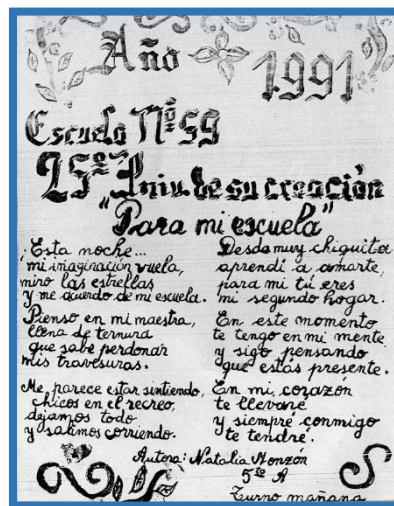 Año 1991
Escuela Nº 59
25º Aniv. de su creación
"Para mi escuela"
Esta noche...
mi imaginación vuela,
miro las estrellas
y me acuerdo de mi escuela.
Pienso en mi maestra,
llena de ternura
que sabe perdonar
mis travesuras.
Me parece estar sintiendo,
chicos en el recreo,
dejamos todo
y salimos corriendo.
Desde muy chiquita
aprendí a amarte,
para mi tú eres
mi segundo hogar.
En este momento
te tengo en mi mente
y sigo pensando
que estás presente.
En mi corazón
te llevaré
y siempre conmigo
te tendré.
Autora: Natalia Monzón
5to A
Turno mañana